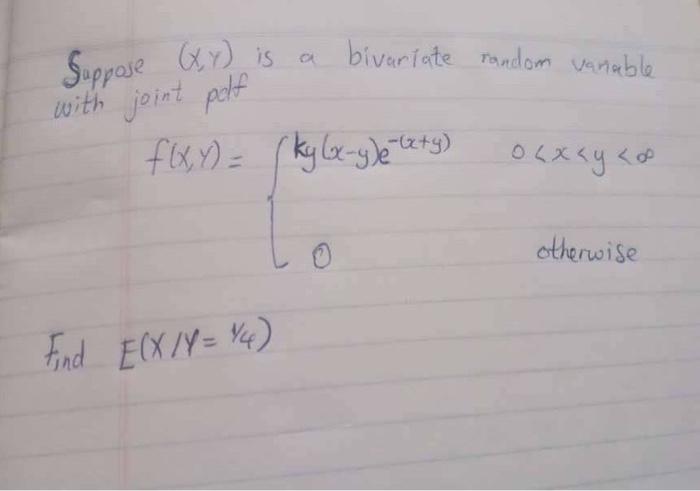 Suppose (X,Y) is a bivariate random variable
with joint pdf
f(X,Y) = { ky(x-y)e^-(x+y) 0<x<y<∞
0 otherwise
Find E(X/Y = 1/4)